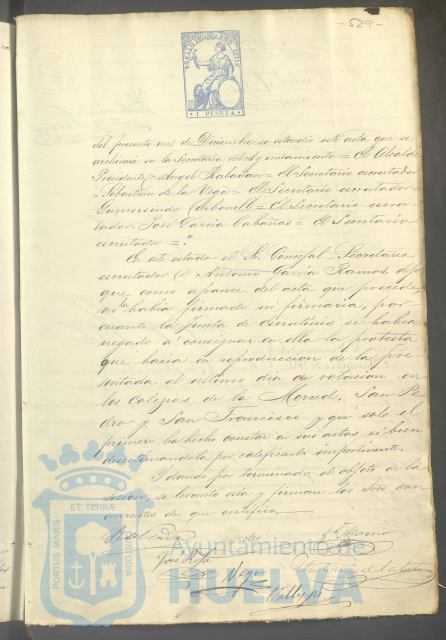 -529-
SELLO 10º AÑO 1881
1 PESETA
del presente mes de Diciembre se estendió esta acta que se
archivará en la Secretaría del Ayuntamiento = El Alcalde
Presidente = Angel Rabadan = El Secretario escrutador
= Sebastian de la Vega = El Secretario escrutador =
Gumersindo Carbonell = El Secretario escru-
tador José García Cabañas = El Secretario
escrutador = "
En este estado el Sr. Concejal = Secretario
escrutador D Antonio García Ramos dijo
que como aparece del acta que precede
no la había firmado ni firmaría, por
cuanto la Junta de escrutinio se había
negado á consignar en ella la protesta
que hacía en reproduccion de la pre-
sentada el último día de votacion en
los Colegios de la Merced, San Pe-
dro y San Francisco y que solo el
primero ha hecho constar en sus actas si bien
desestimándola por calificarla impertinente.
Y dando por terminado el objeto de la
sesion, se levantó esta y firman los Sres con-
currentes de que certifico.
Moreno
José
Vega
PORTUS MARIS
ET TERRÆ
CUSTODIA
Ayuntamiento de
HUELVA